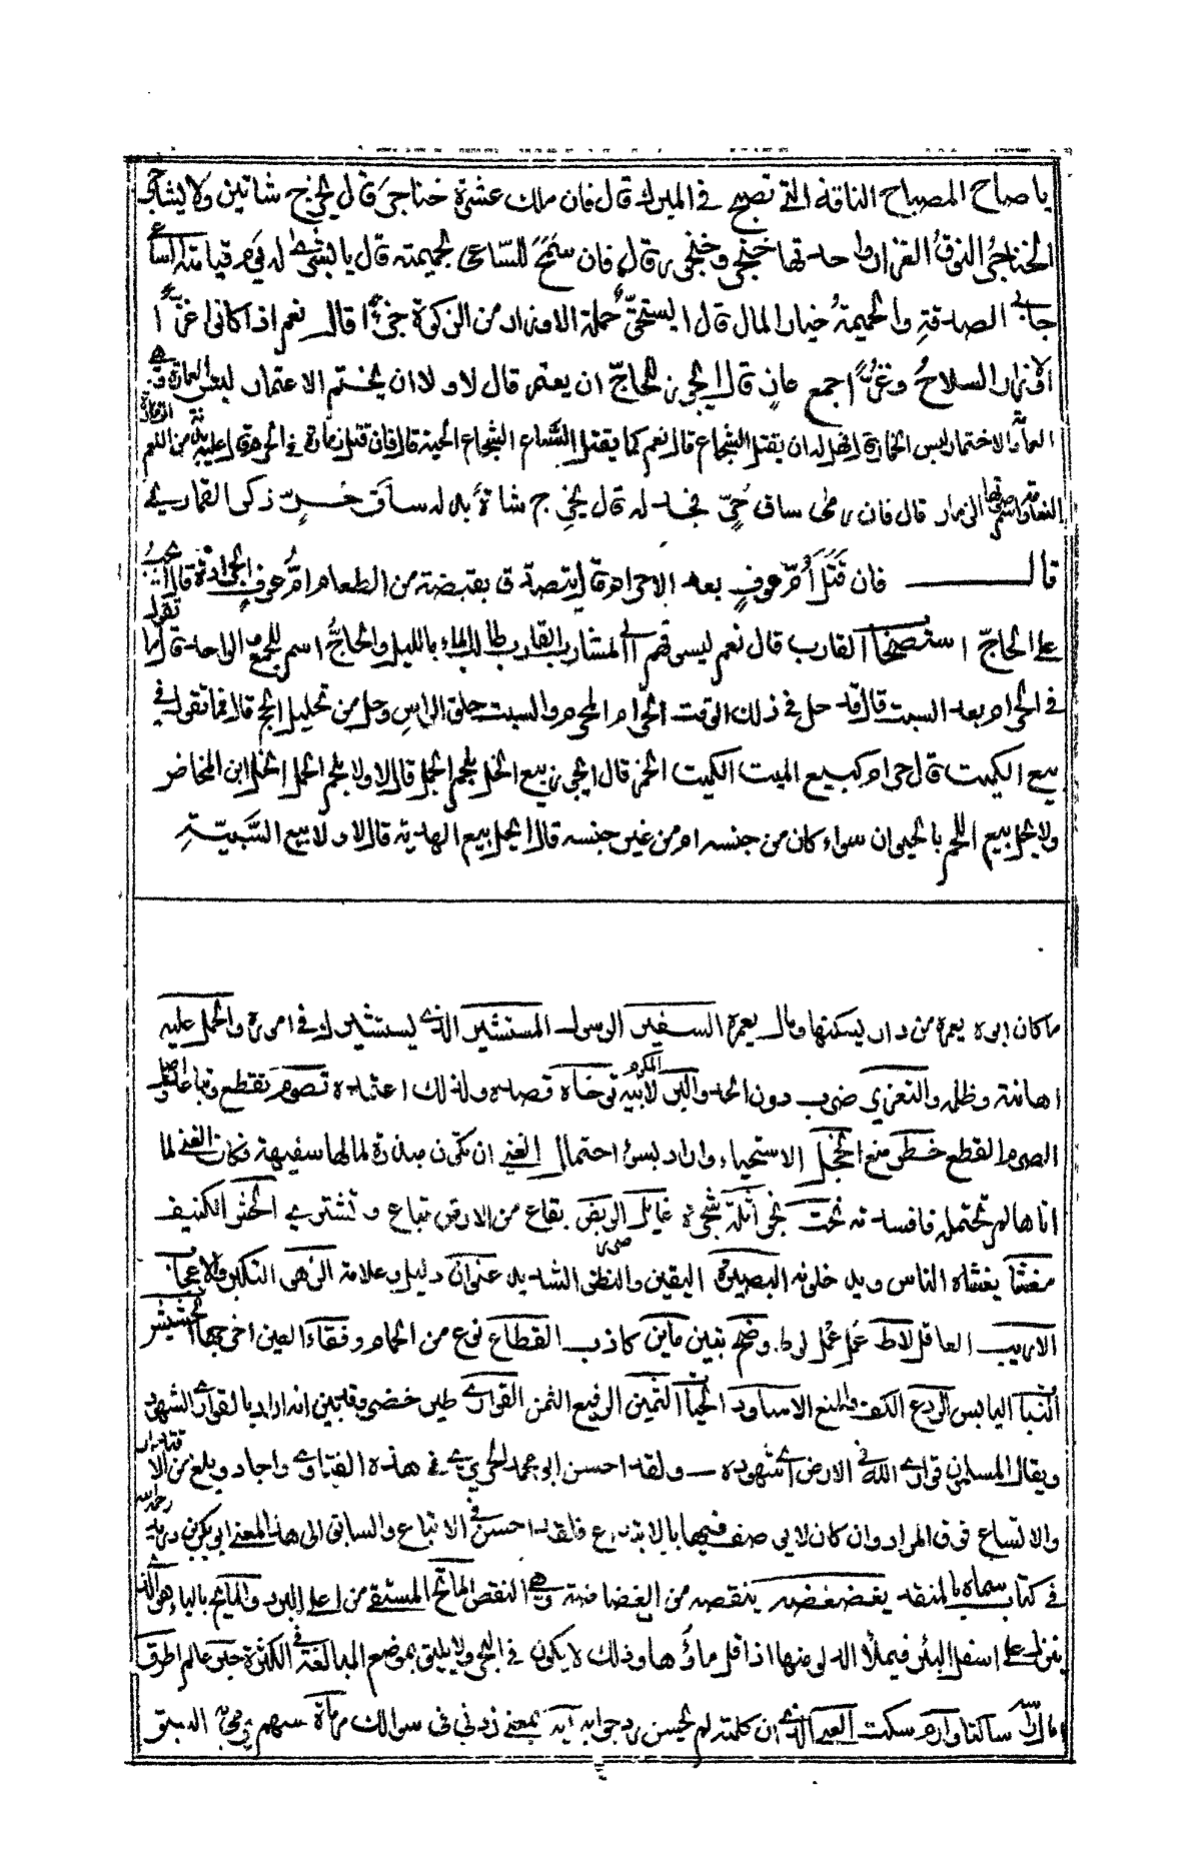 يا صاح المصباح الناقة التي تصبح في المبرك قال فان ملك عشرة خناجر قال يخرج شاتين ولا يشاجر
الخناجر النوق الغزار واحدتها خنجر وخنجور قال فان سمح للساعي بحميمته قال يا بشرى له يوم قيامته الساعي
جابي الصدقة والحميمة خيار المال قال ايستحق حملة الاوزار من الزكوة جزءا قال نعم اذا كانوا غزّا
الاوزار السلاح وغزّا جمع غاز قال ايجوز للحاج ان يعتمر قال لا ولا ان يختمر الاعتمار لبس العمارة وهي
العمامة والاختمار لبس الخمار قال فهل له ان يقتل الشجاع قال نعم كما يقتل السباع الشجاع الحية قال فان قتل زمارة في الحرم قال عليه بدنة من النعم الزمارة
النعامة واسم صوتها الزمار قال فان رمى ساق حرّ فجدله قال يخرج شاة بدله ساق حرّ ذكر القماري
قال فان قتل أمّ عوف بعد الاحرام قال يتصدق بقبضة من الطعام امّ عوف الجرادة قال ايجب
على الحاجّ استصحاب القارب قال نعم ليسوقهم الى المشارب القارب طالب الماء بالليل والحاجّ اسم للجمع والواحد قال ما تقول
في الحرام بعد السبت قال قد حل في ذلك الوقت الحرام المحرم والسبت حلق الراس وحل من تحليل الحج قال فما تقول في
بيع الكميت قال حرام كبيع الميت الكميت الخمر قال ايجوز بيع الخل بلحم الجمل قال لا ولا بلحم الحمل الخل ابن المخاض
ولا يحل بيع اللحم بالحيوان سواء كان من جنسه او من غير جنسه قال ايحل بيع الهدية قال لا ولا بيع السّبيّة
ما كان ابوه يعمره من دار يسكنها ومال يعمره السفير الرسول المستشير الذي يستشيرك في امره والحمل عليه
اهانته وظلمه والتعزير ضرب دون الحد والبر لابيه المكرم توخاه قصده ولذلك اعتمده تصوم تقطع وتباعد واصل
الصوم القطع خطر منع الخجل الاستحياء واراد بسؤ احتمال الغنى ان تكون مبذرة لمالها سفيهة فكان الغنى لما
اتاها لم تحتمله فافسدته نحت نجر اثلة شجرة غايل الربض بقاع من الارض تباع وتشترى الحش الكنيف
مغشا يغشاه الناس ويدخلونه البصيرة اليقين والنظر الشديد عنوان دليل وعلامة الزهو التكبر والاعجاز
الاريب العاقل لاط عمل عمل لوط وضح تبين ماين كاذب القطاع نوع من الحمام وفقاء العين اخرجها الحشيش
النبات اليابس الردع الكف والمنع الاساود الحيات الثمين الرفيع الثمن القواري طير خضر ويتبين انه اراد بالقواري الشهود
ويقال المسلمون قواري الله في الارض اي شهوده ــ ولقد احسن ابو محمد الحريري في هذه الفتاوى واجاد وبلغ من الاقتدار
والاتساع فوق المراد وان كان لا يوصف فيها بالابتداع فلقد احسن في الاتباع والسابق الى هذا المعنى ابو بكر بن دريد رحمه الله
في كتاب سماه بالمنقد يغضغضه ينقصه من الغضاضة وهي النقص الماتح المستقي من اعلى البئر والمايح بالياء هو الذي
ينزل على اسفل البئر فيملأ الدلو منها اذا قل ماؤها وذلك لا يكون في البحر ولا يليق بموضع المبالغة في الكثرة حبر عالم اطرق
امال راسه ساكتا وارم سكت العيي الذي ان كلمته لم يحسن رد جوابه ايه بمعنى زدني في سوالك مرماة سهم يرمى به السبق